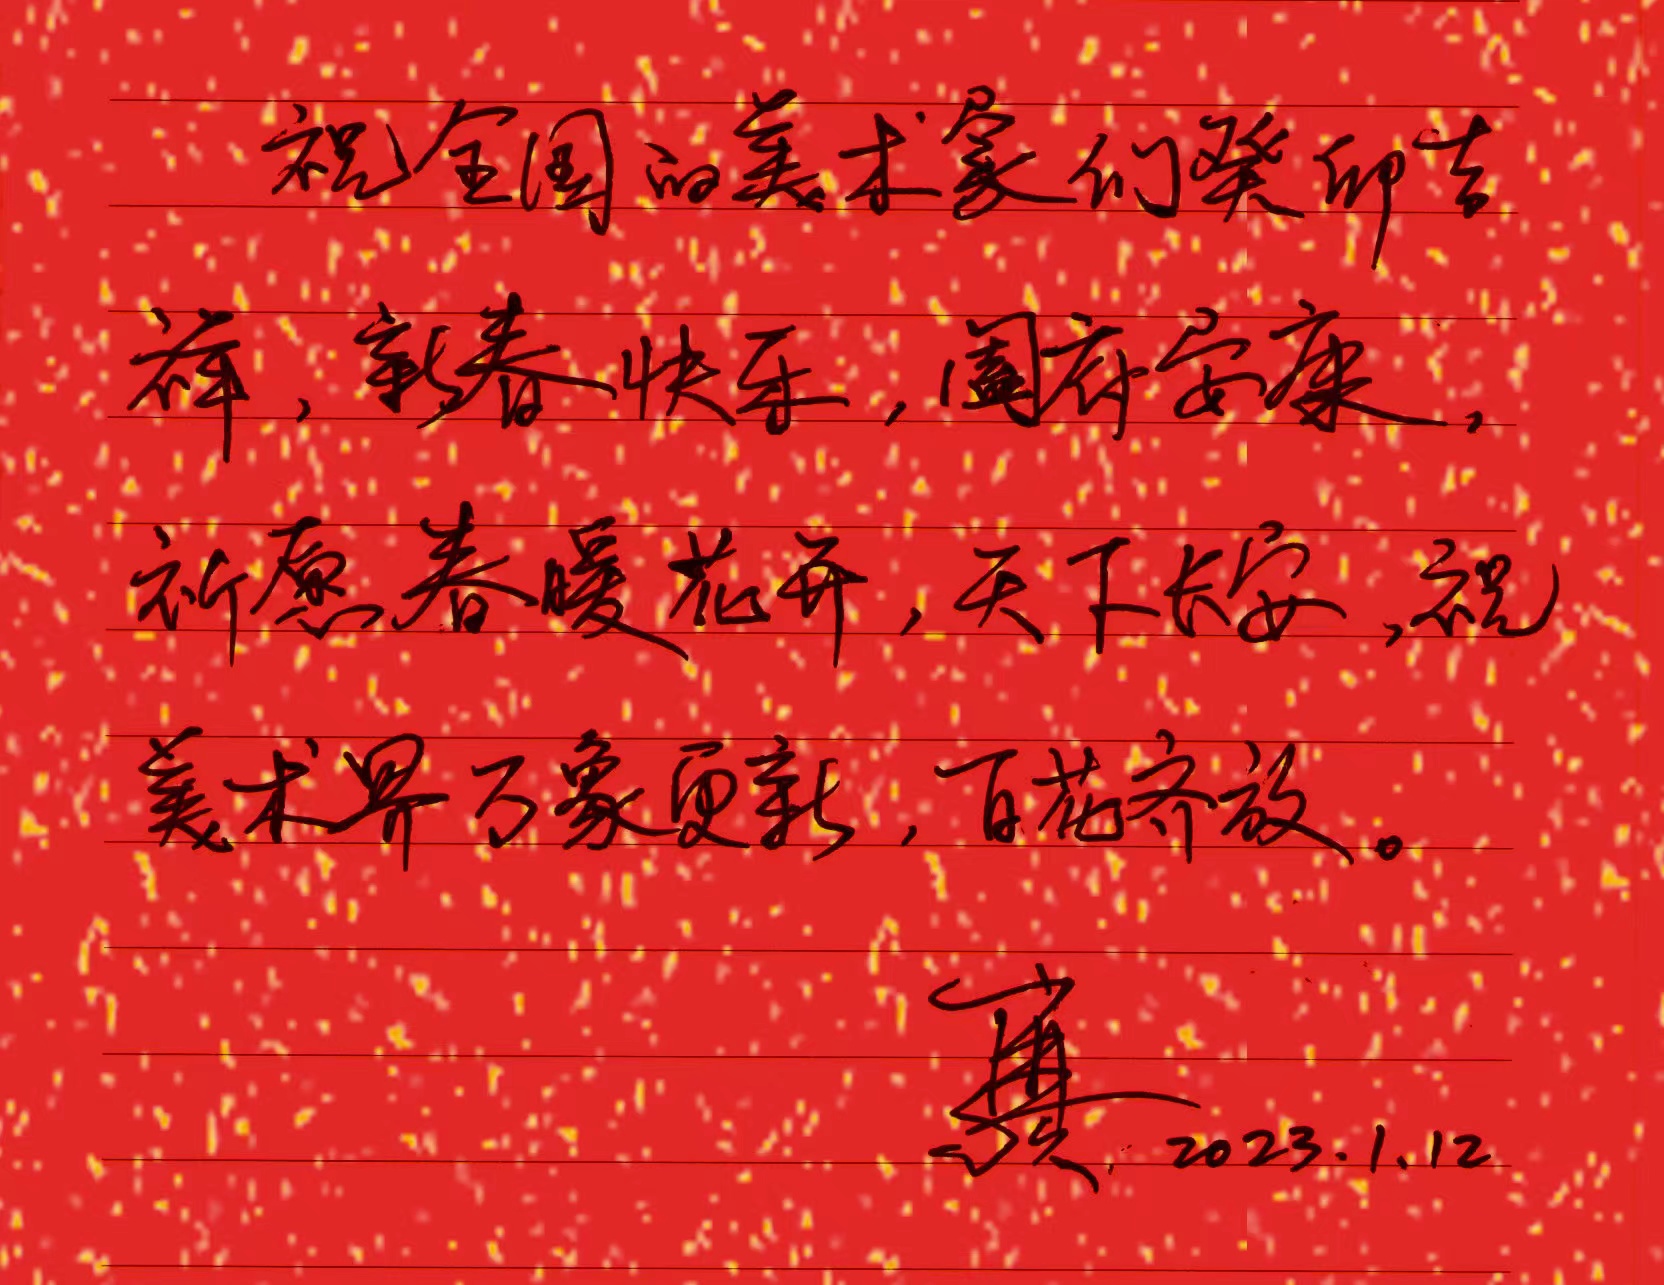 祝全国的美术家们癸卯吉
祥，新春快乐，阖府安康，
祈愿春暖花开，天下长安，祝
美术界万象更新，百花齐放。
2023.1.12